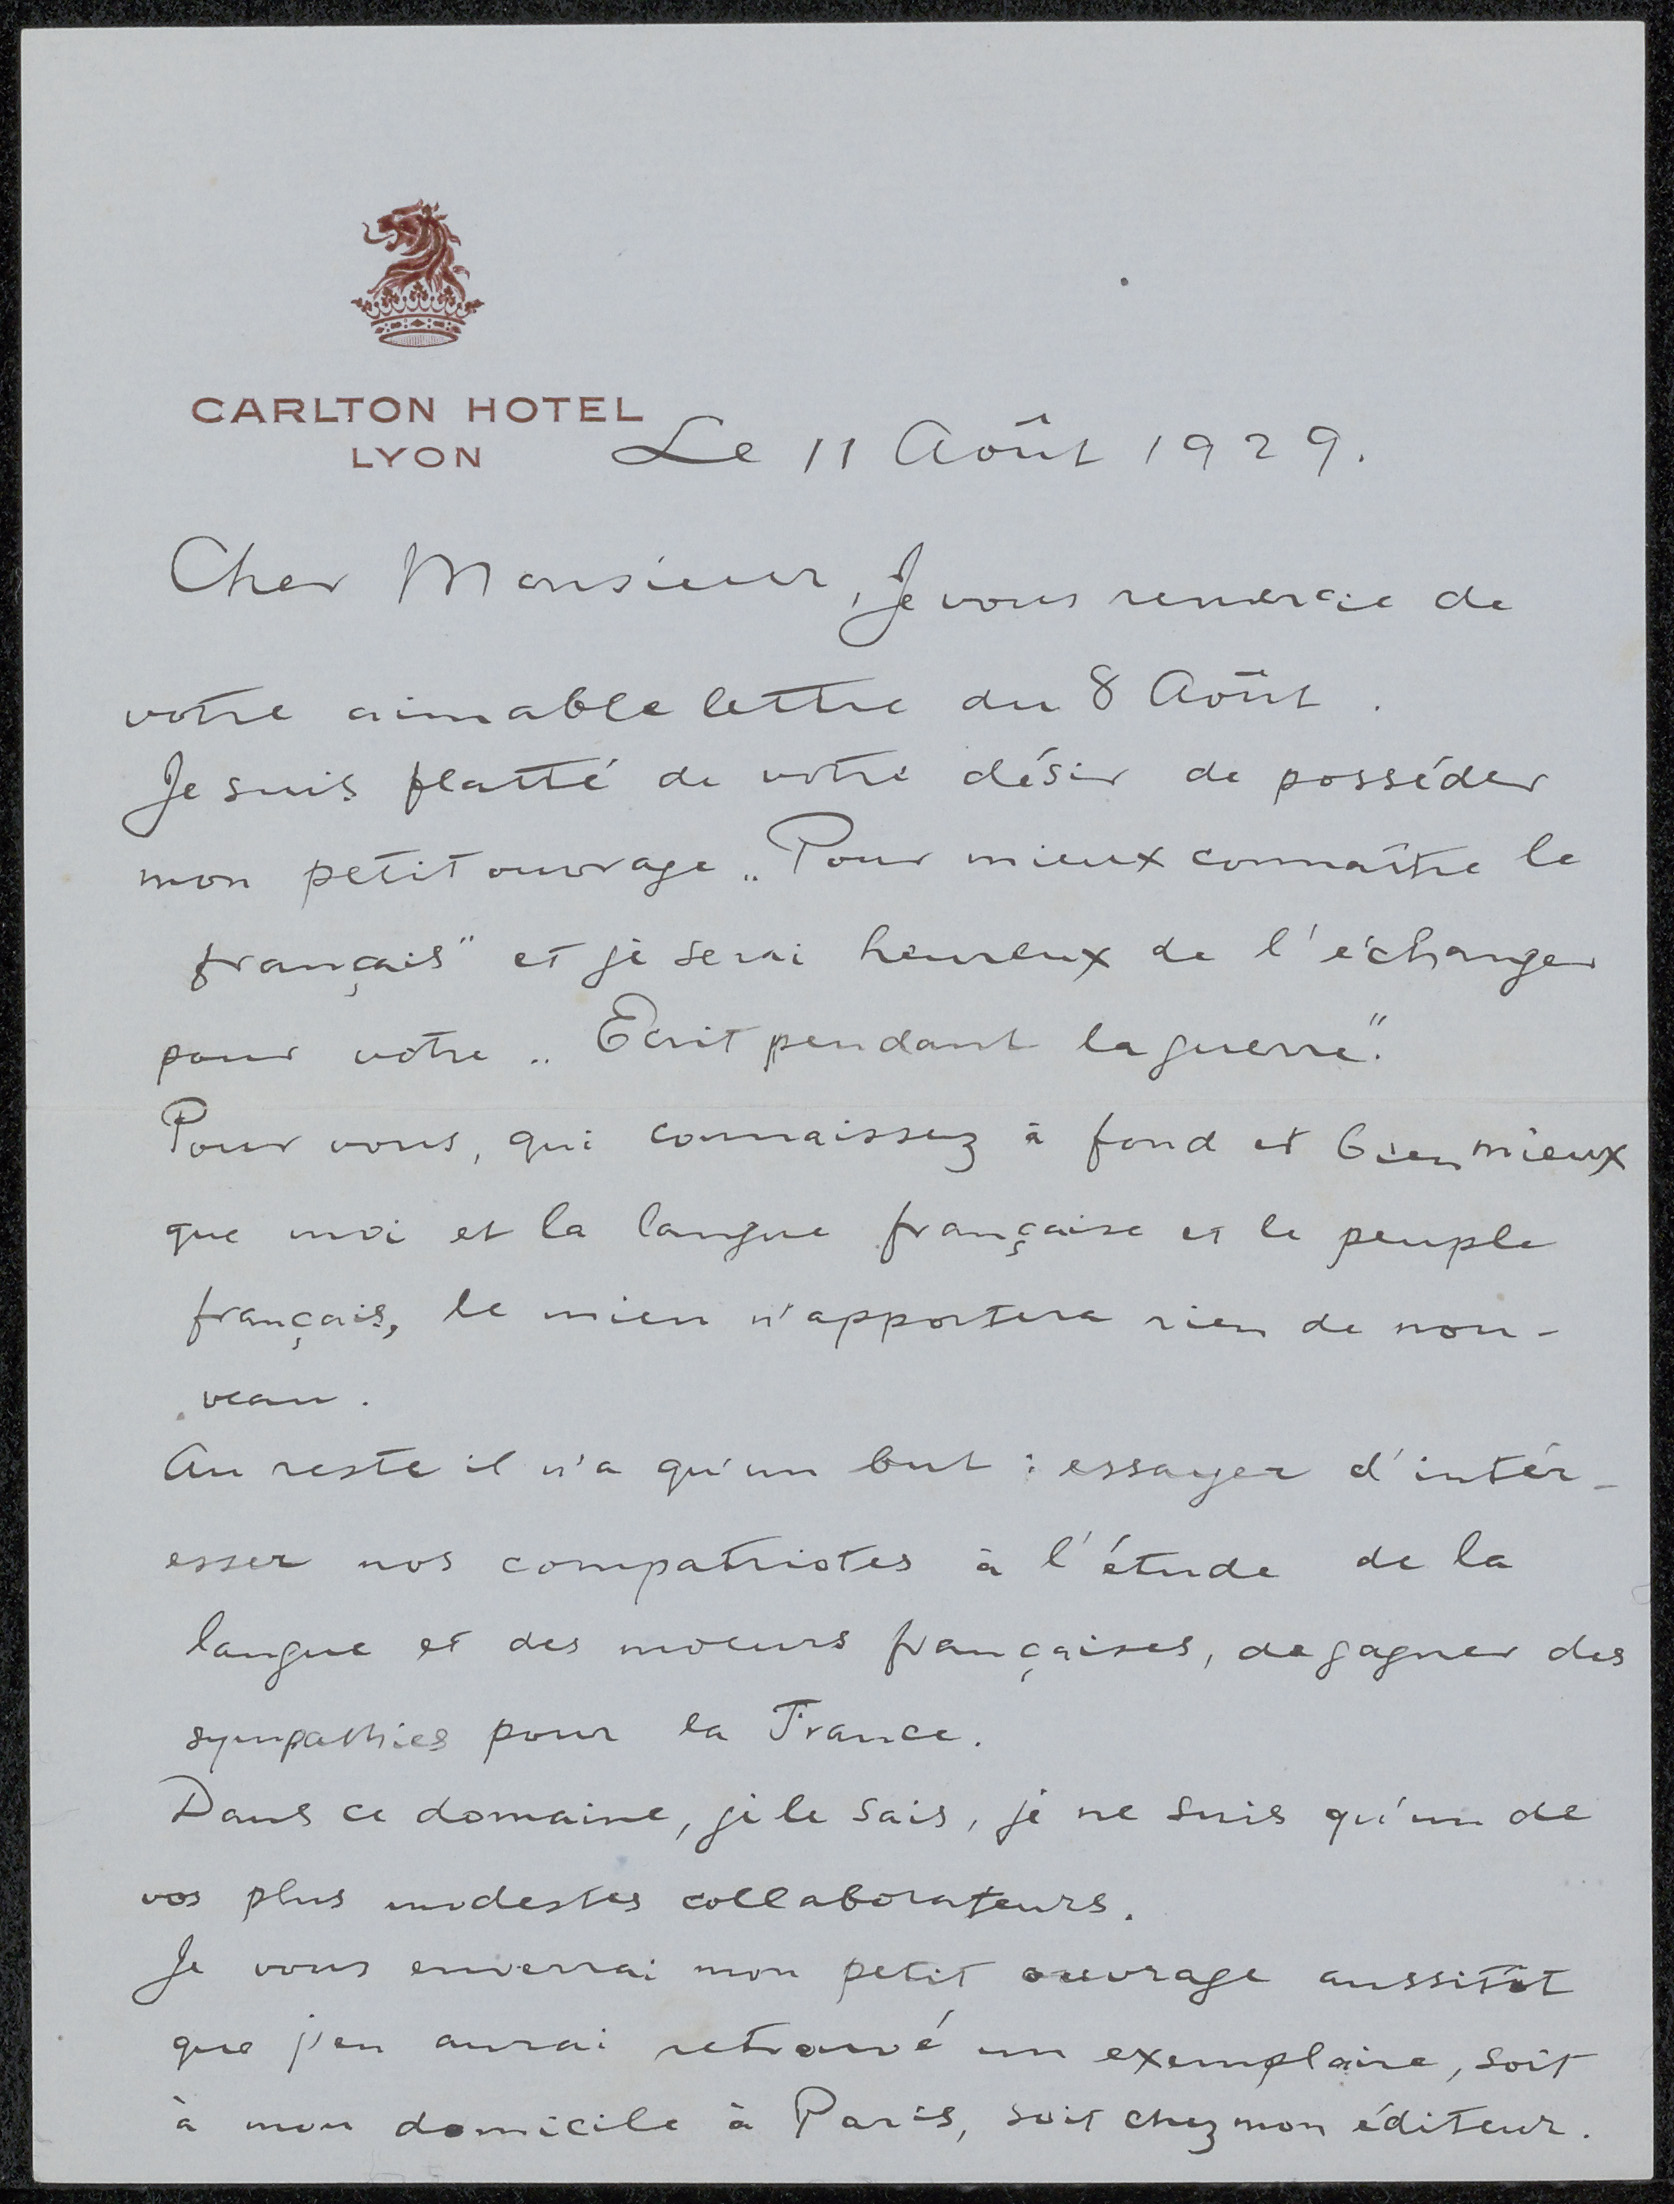 CARLTON HOTEL
LYON
Le 11 Août 1929.
Cher Monsieur, Je vous remercie de
votre aimable lettre du 8 Août.
Je suis flatté de votre désir de posséder
mon petit ouvrage „Pour mieux connaître le
français" et je serai heureux de l'échanger
pour votre „Ecrit pendant la guerre".
Pour vous, qui connaissez à fond et bien mieux
que moi et la langue française et le peuple
français, le mien n'apportera rien de nou-
veau.
Au reste il n'a qu'un but : essayer d'intér-
esser nos compatriotes à l'étude de la
langue et des moeurs françaises, de gagner des
sympathies pour la France.
Dans ce domaine, je le sais, je ne suis qu'un de
vos plus modestes collaborateurs.
Je vous enverrai mon petit ouvrage aussitôt
que j'en aurai retrouvé un exemplaire, soit
à mon domicile à Paris, soit chez mon éditeur.